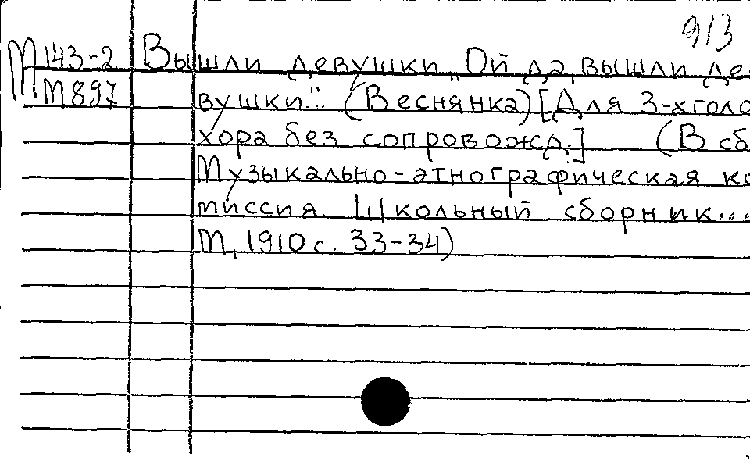 913
М 143-2 Вышли девушки „Ой да вышли де
М 897 вушки..." (Веснянка) [Для 3-х голо
хора без сопровожд.] (В сб
Музыкально-этнографическая ко
миссия Школьный сборник...
М, 1910 с. 33-34)